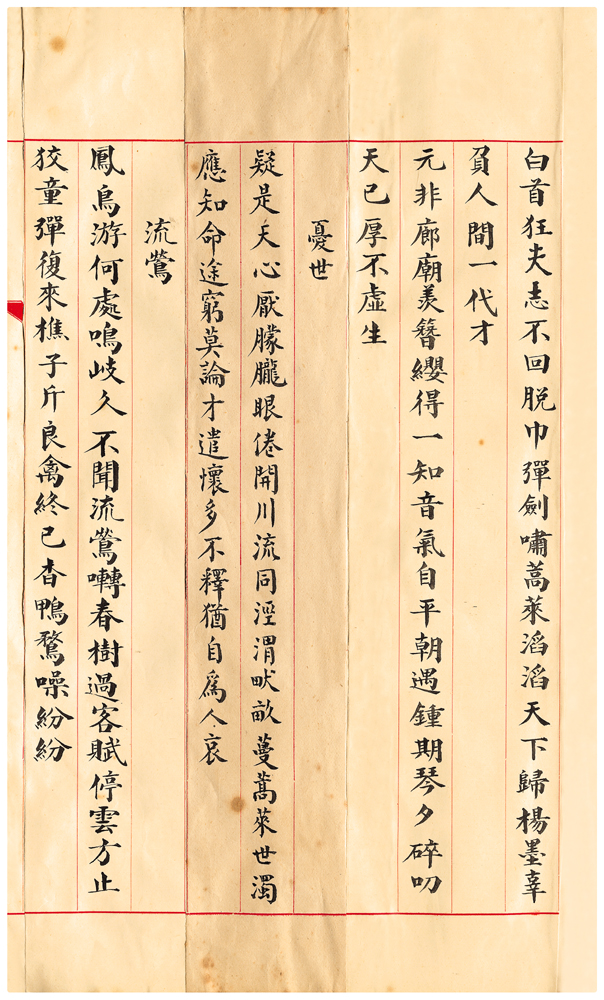 白首狂夫志不回脱巾彈劍嘯蒿萊滔滔天下歸楊墨辜
負人間一代才
元非廊廟羨簪纓得一知音氣自平朝遇鍾期琴夕碎叨
天已厚不虛生
憂世
疑是天心厭朦朧眼倦開川流同涇渭畎畝蔓蒿萊世濁
應知命途窮莫論才遣懷多不釋猶自爲人哀
流鶯
鳳鳥游何處鳴岐久不聞流鶯囀春樹過客賦停雲方止
狡童彈復來樵子斤良禽終已杳鴨鶩噪紛紛